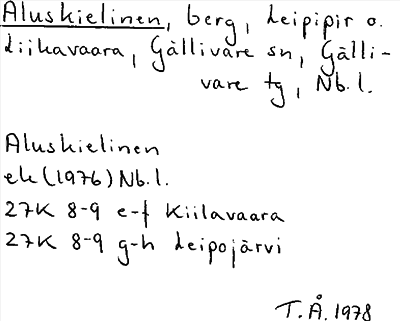 Aluskielinen, berg, Leipipir o.
Liikavaara, Gällivare sn, Gälli-
vare tg, Nb.l.
Aluskielinen
ek (1976) Nb.l.
27K 8-9 e-f Kiilavaara
27K 8-9 g-h Leipojärvi
T.Å. 1978